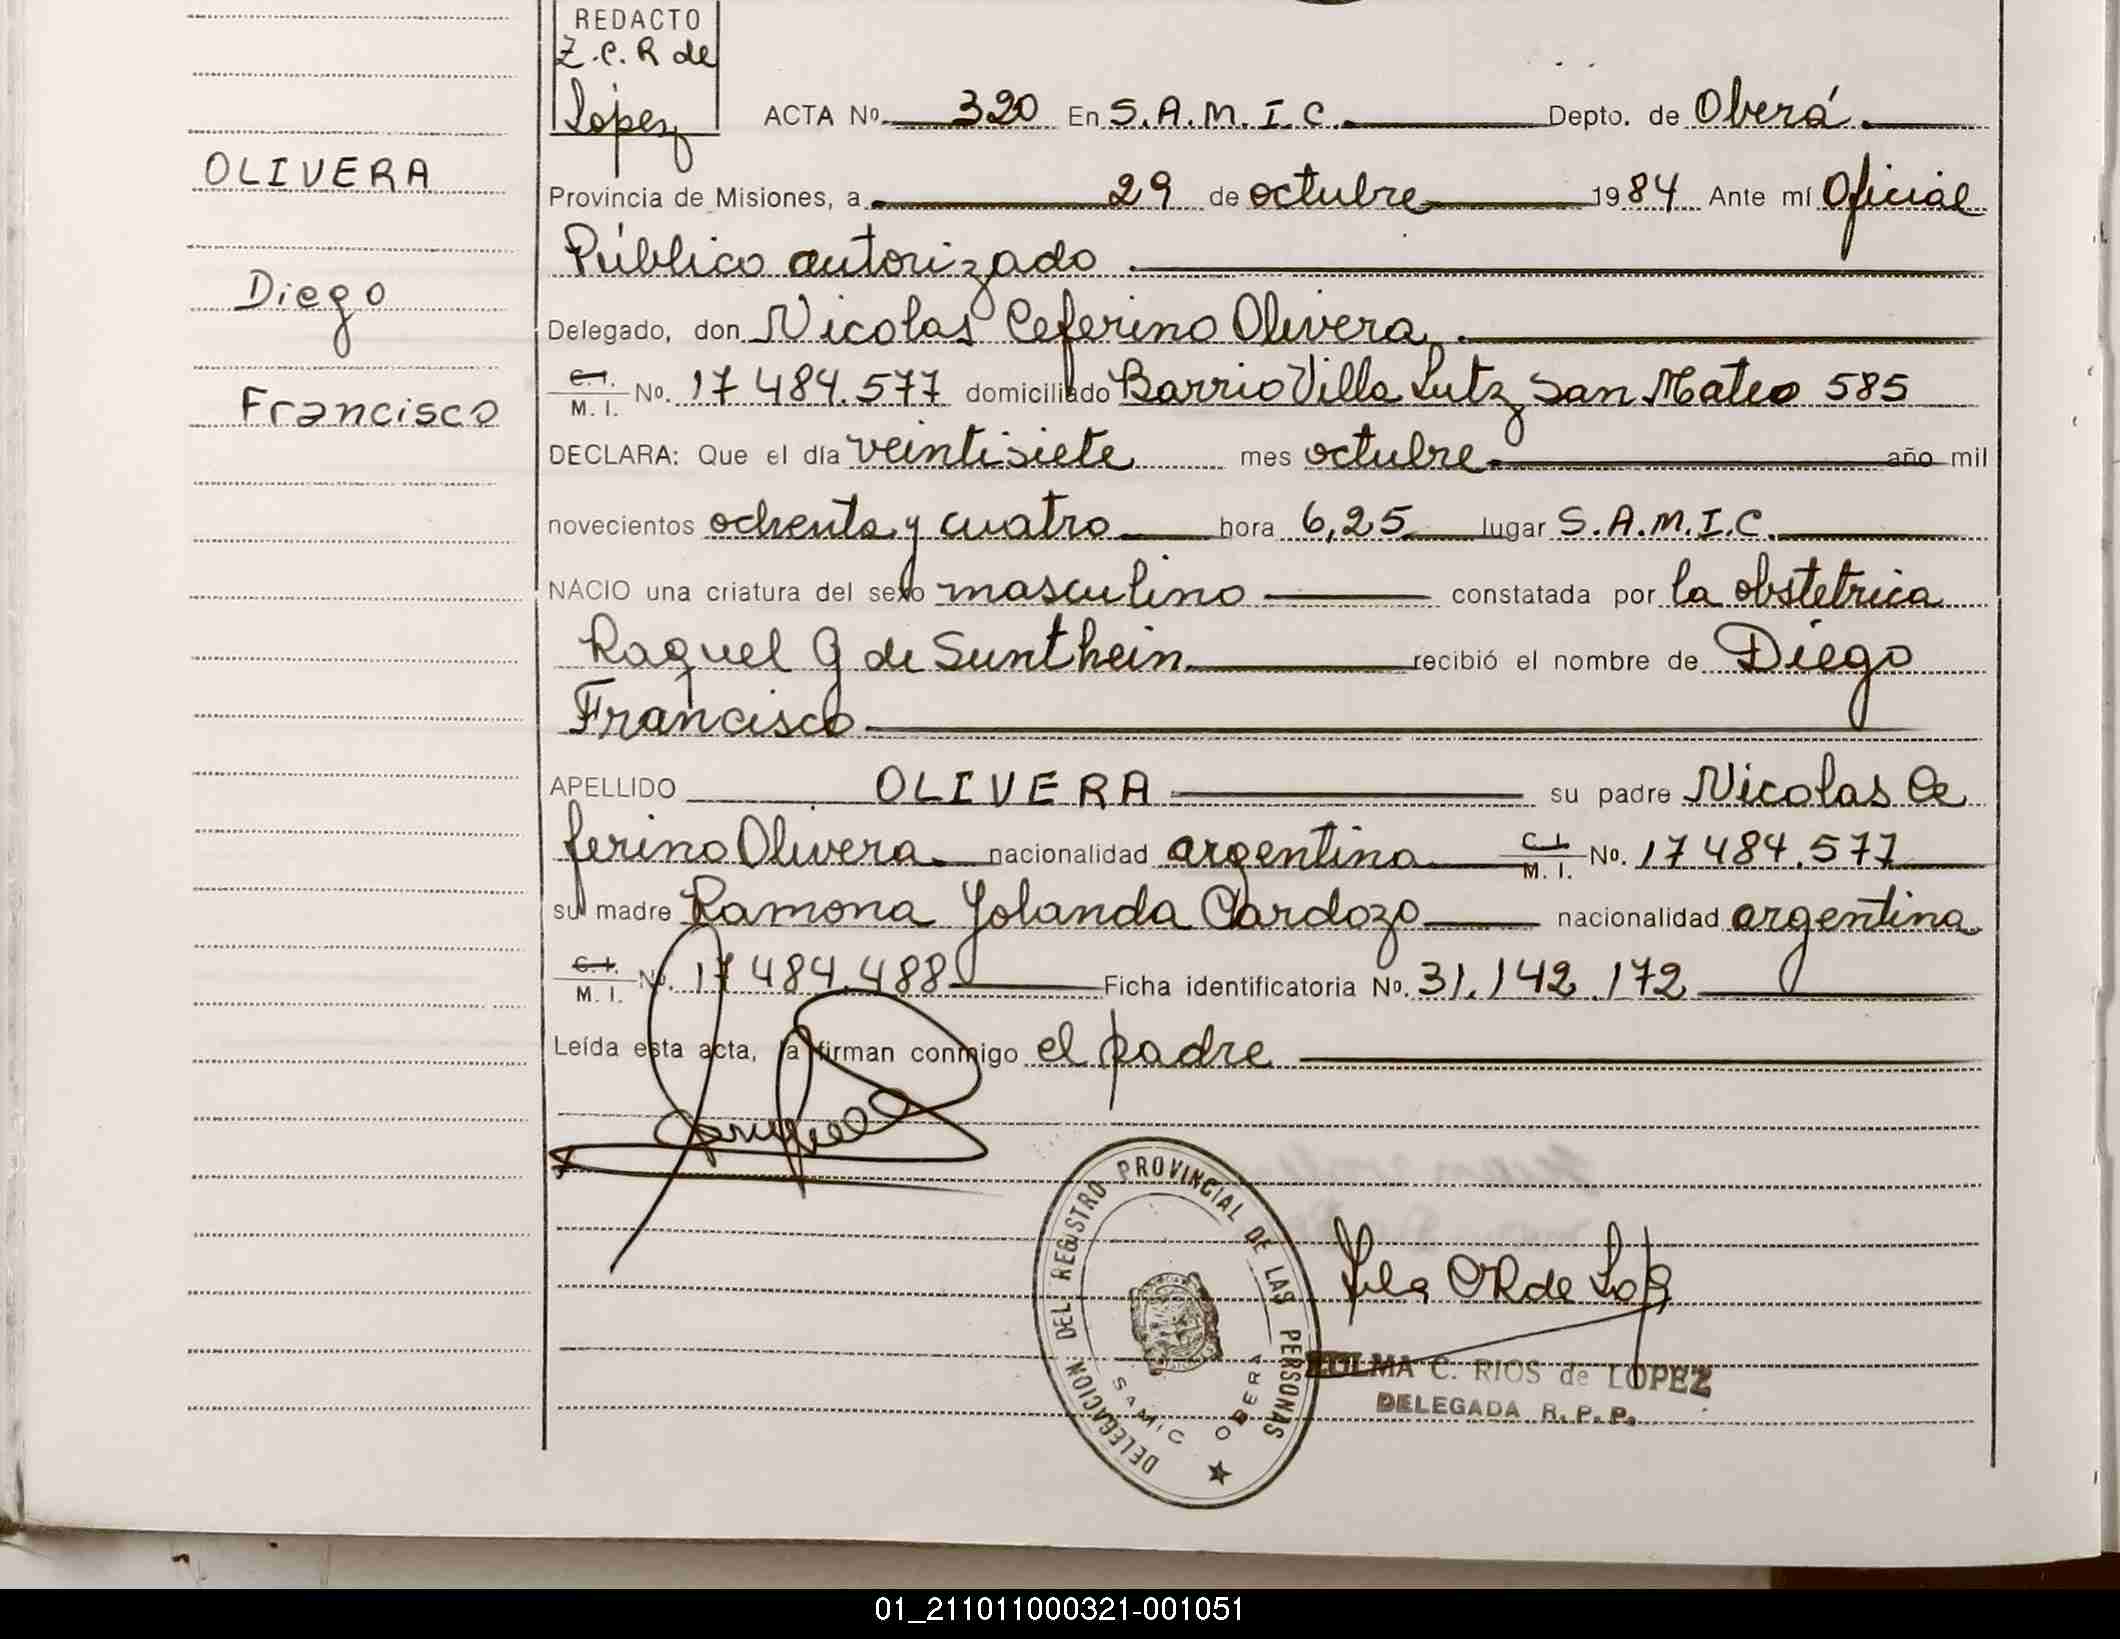 REDACTO
Z.C.R de
López
ACTA Nº 320 En S.A.M.I.C. Depto. de Oberá.
OLIVERA
Provincia de Misiones, a 29 de octubre 1984 Ante mí Oficial
Público autorizado
Diego
Delegado, don Nicolas Ceferino Olivera
C.I. M.I. No. 17 484.577 domiciliado Barrio Villa Lutz San Mateo 585
Francisco
DECLARA: Que el día veintisiete mes octubre año mil
novecientos ochenta y cuatro hora 6,25 lugar S.A.M.I.C.
NACIO una criatura del sexo masculino constatada por la obstetrica
Raquel G de Sunthein recibió el nombre de Diego
Francisco
APELLIDO OLIVERA su padre Nicolas Ce
ferino Olivera nacionalidad argentina C.I. M.I. No. 17 484.577
su madre Ramona Yolanda Cardozo nacionalidad argentina
C.I. M.I. No. 17 484.488 Ficha identificatoria No. 31.142.172
Leída esta acta, la firman conmigo el padre
DELEGACION DEL REGISTRO PROVINCIAL DE LAS PERSONAS
SAMIC OBERA
ZULMA C. RIOS de LOPEZ
DELEGADA R.P.P.
01_211011000321-001051